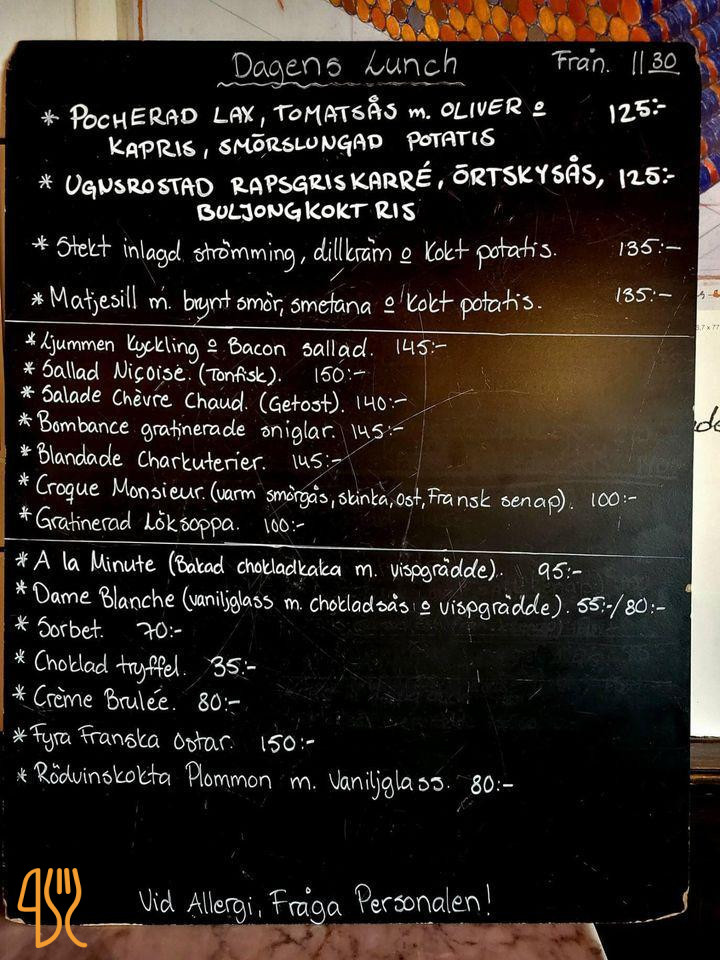 Dagens Lunch Från. 11 30
* POCHERAD LAX, TOMATSÅS m. OLIVER o 125:-
KAPRIS, SMÖRSLUNGAD POTATIS
* UGNSROSTAD RAPSGRISKARRÉ, ÖRTSKYSÅS, 125:-
BULJONGKOKT RIS
* Stekt inlagd strömming, dillkräm o kokt potatis. 135:-
* Matjesill m. brynt smör, smetana o kokt potatis. 135:-
* Ljummen kyckling o Bacon sallad. 145:-
* Sallad Niçoise. (Tonfisk). 150:-
* Salade Chèvre Chaud. (Getost). 140:-
* Bombance gratinerade sniglar. 145:-
* Blandade Charkuterier. 145:-
* Croque Monsieur. (varm smörgås, skinka, ost, Fransk senap). 100:-
* Gratinerad Löksoppa. 100:-
* A la Minute (Bakad chokladkaka m. vispgrädde). 95:-
* Dame Blanche (vaniljglass m. chokladsås o vispgrädde). 55:-/80:-
* Sorbet. 70:-
* Choklad tryffel. 35:-
* Crème Brulée. 80:-
* Fyra Franska Ostar. 150:-
* Rödvinskokta Plommon m. Vaniljglass. 80:-
Vid Allergi, Fråga Personalen!